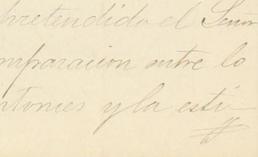 pretendido el Senor
mparacion entre lo
ntonces y la esti